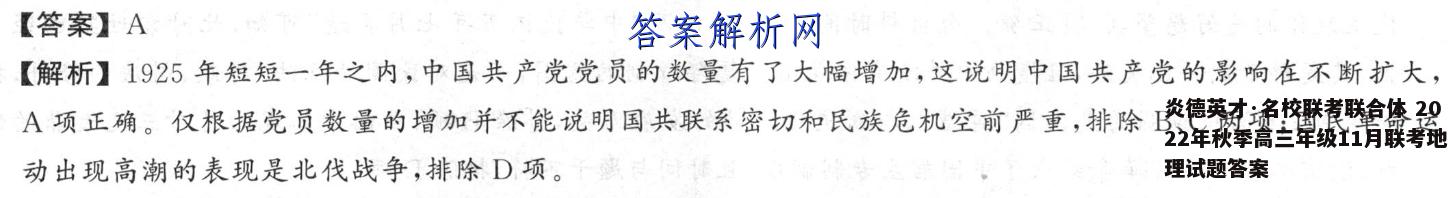 【答案】A
答案解析网
【解析】1925年短短一年之内,中国共产党党员的数量有了大幅增加,这说明中国共产党的影响在不断扩大,
A项正确。仅根据党员数量的增加并不能说明国共联系密切和民族危机空前严重,排除B、C两项;国民革命运
动出现高潮的表现是北伐战争,排除D项。
炎德英才·名校联考联合体 20
22年秋季高三年级11月联考地
理试题答案